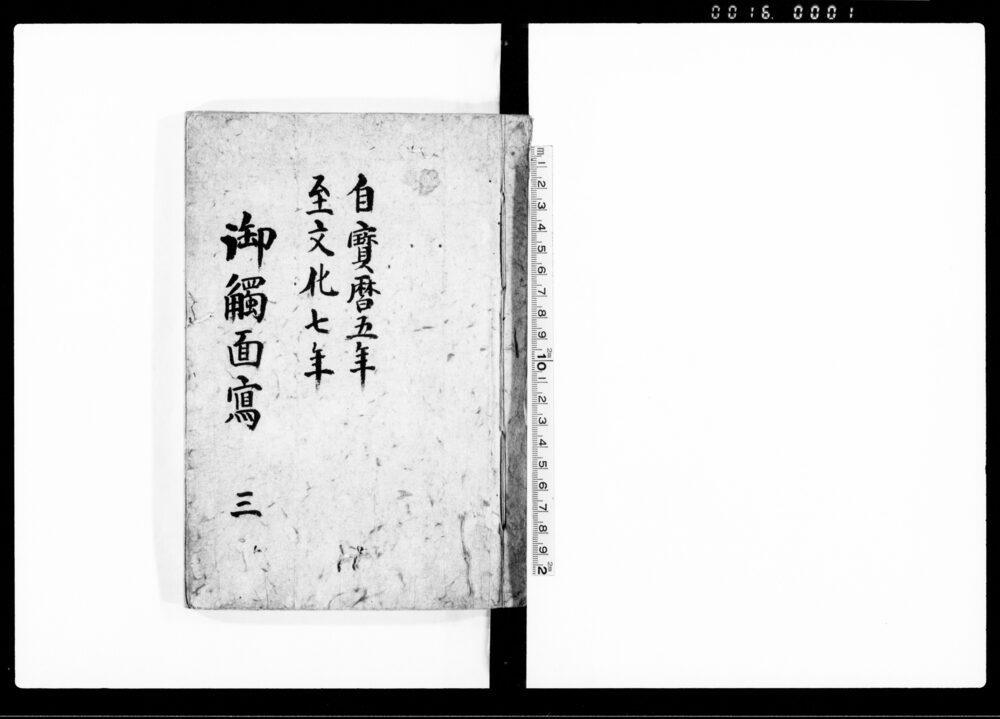 0016. 0001
自寳暦五年
至文化七年
御觸面寫 三
m 1 2 3 4 5 6 7 8 9 10 1 2 3 4 5 6 7 8 9 2